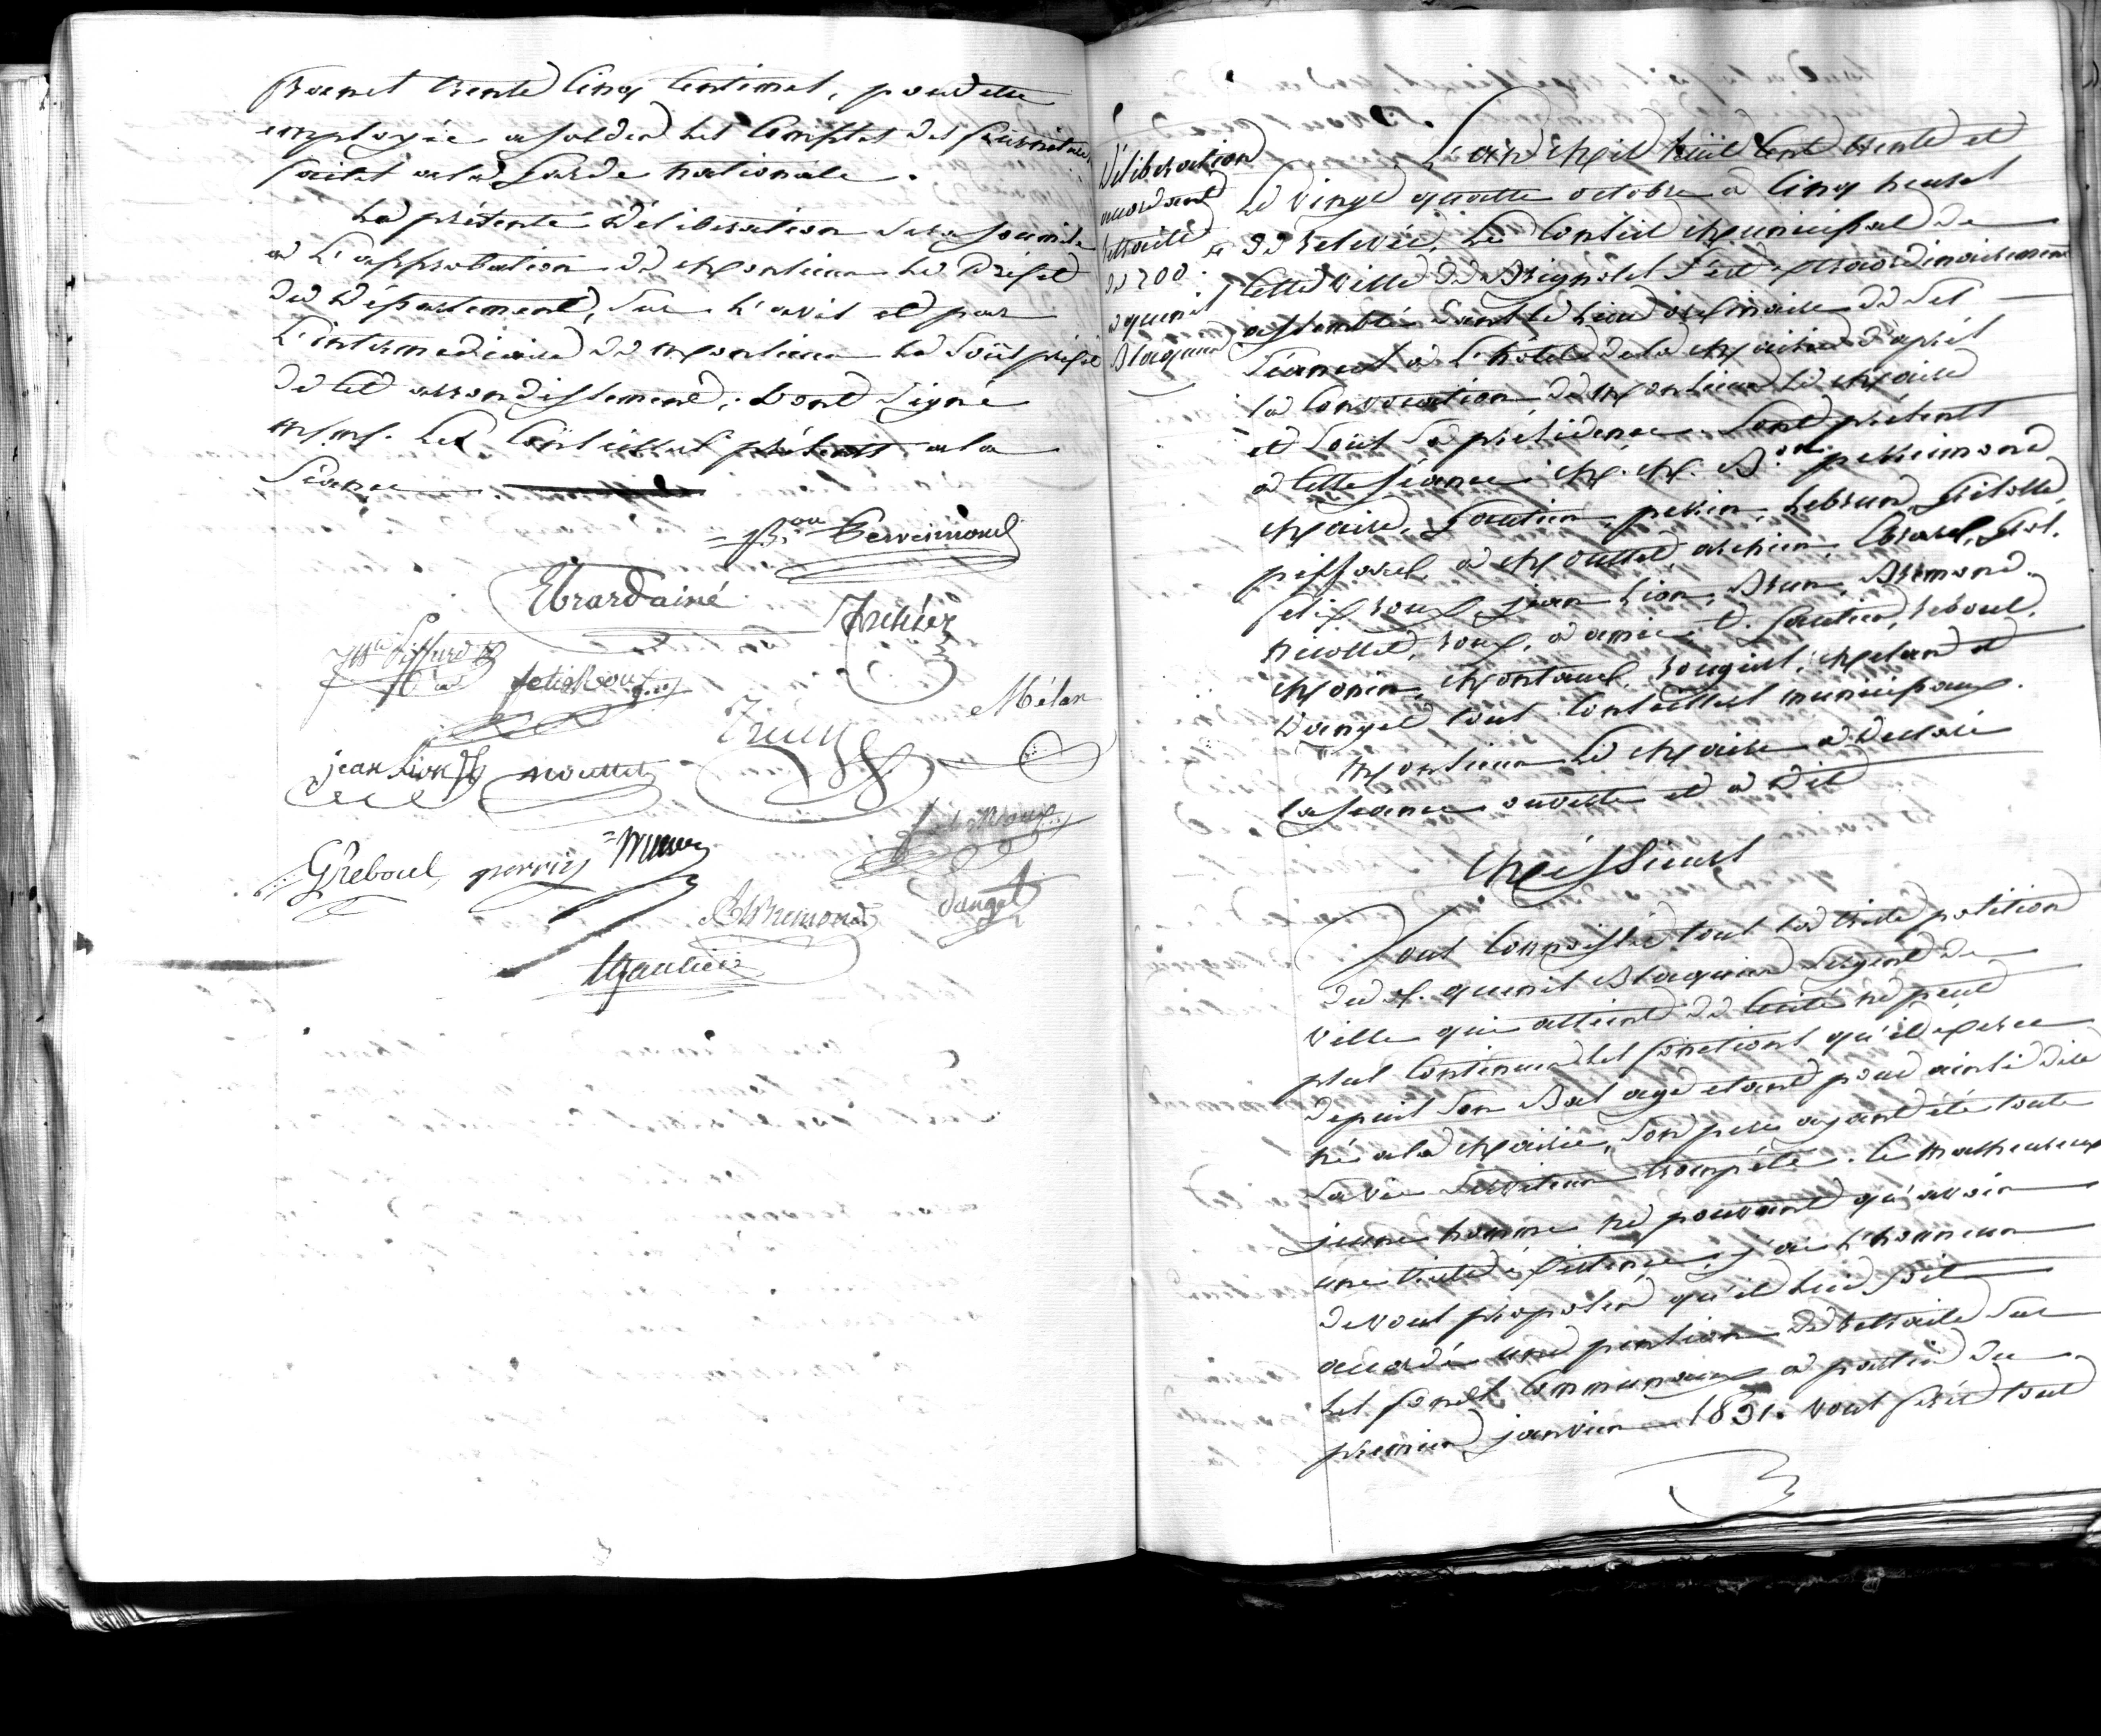 francs trente cinq centimes, pour etre
employée a solder les Comptes des fournitures
faites a la Garde nationale.
La présente Délibération sera soumise
a L'approbation de Monsieur Le Préfet
du Département, sur L'avis et par
L'intermediaire de Monsieur Le Sous préfet
de cet arrondissement; Dont Signé
M.M. Les Conseillers présents a la
Séance
Bon Perreimond
Ebrard ainé
Archier
Piffard
felix Roux
Mélan
jean Lion
Mouttet
G Reboul perrin Brun
Bremond Dauget
Gautier
Délibération
accordant
retraite
de 200 f
a quenis
Blaquier
L'an Mil huit Cent trente et
Le vingt quatre octobre a Cinq heures
de relevée, Le Conseil Municipal de
Cette ville de Brignoles s'est extraordinairement
assemblé dans le Lieu ordinaire de ses
séances a L'hôtel de la Mairie d'après
la Convocation de Monsieur Le Maire
et sous sa présidence. sont présents
a Cette séance M. M. Bon perreimond
Maire, Gautier, perrin, Lebrun,
piffard, a Mouttet, archier, Ebrard,
felix roux, jean Lion, Brun, Bremond,
nicollet, roux, D. Gautier, reboul,
Monin, Montaud, rougiers, Melan et
Dauget tous Conseillers municipaux.
Monsieur Le Maire a Declaré
la séance ouverte et a Dit
Messieurs
Vous Connoissés tous la triste position
du S. quenis Blaquier sergent de
ville qui atteint de Cécité ne peut
plus Continuer les fonctions qu'il éxerce
depuis son Bas age etant pour ainsi dire
né a la Mairie, son pere ayant été toute
sa vie serviteur trompéte. Ce malheureux
jeune homme ne pouvant qu'avoir
une triste existence, j'ai L'honneur
de vous proposer qu'il Lui soit
accordé une pension de retraite sur
les fonds Communaux a partir du
premier janvier 1831. vous serés tous